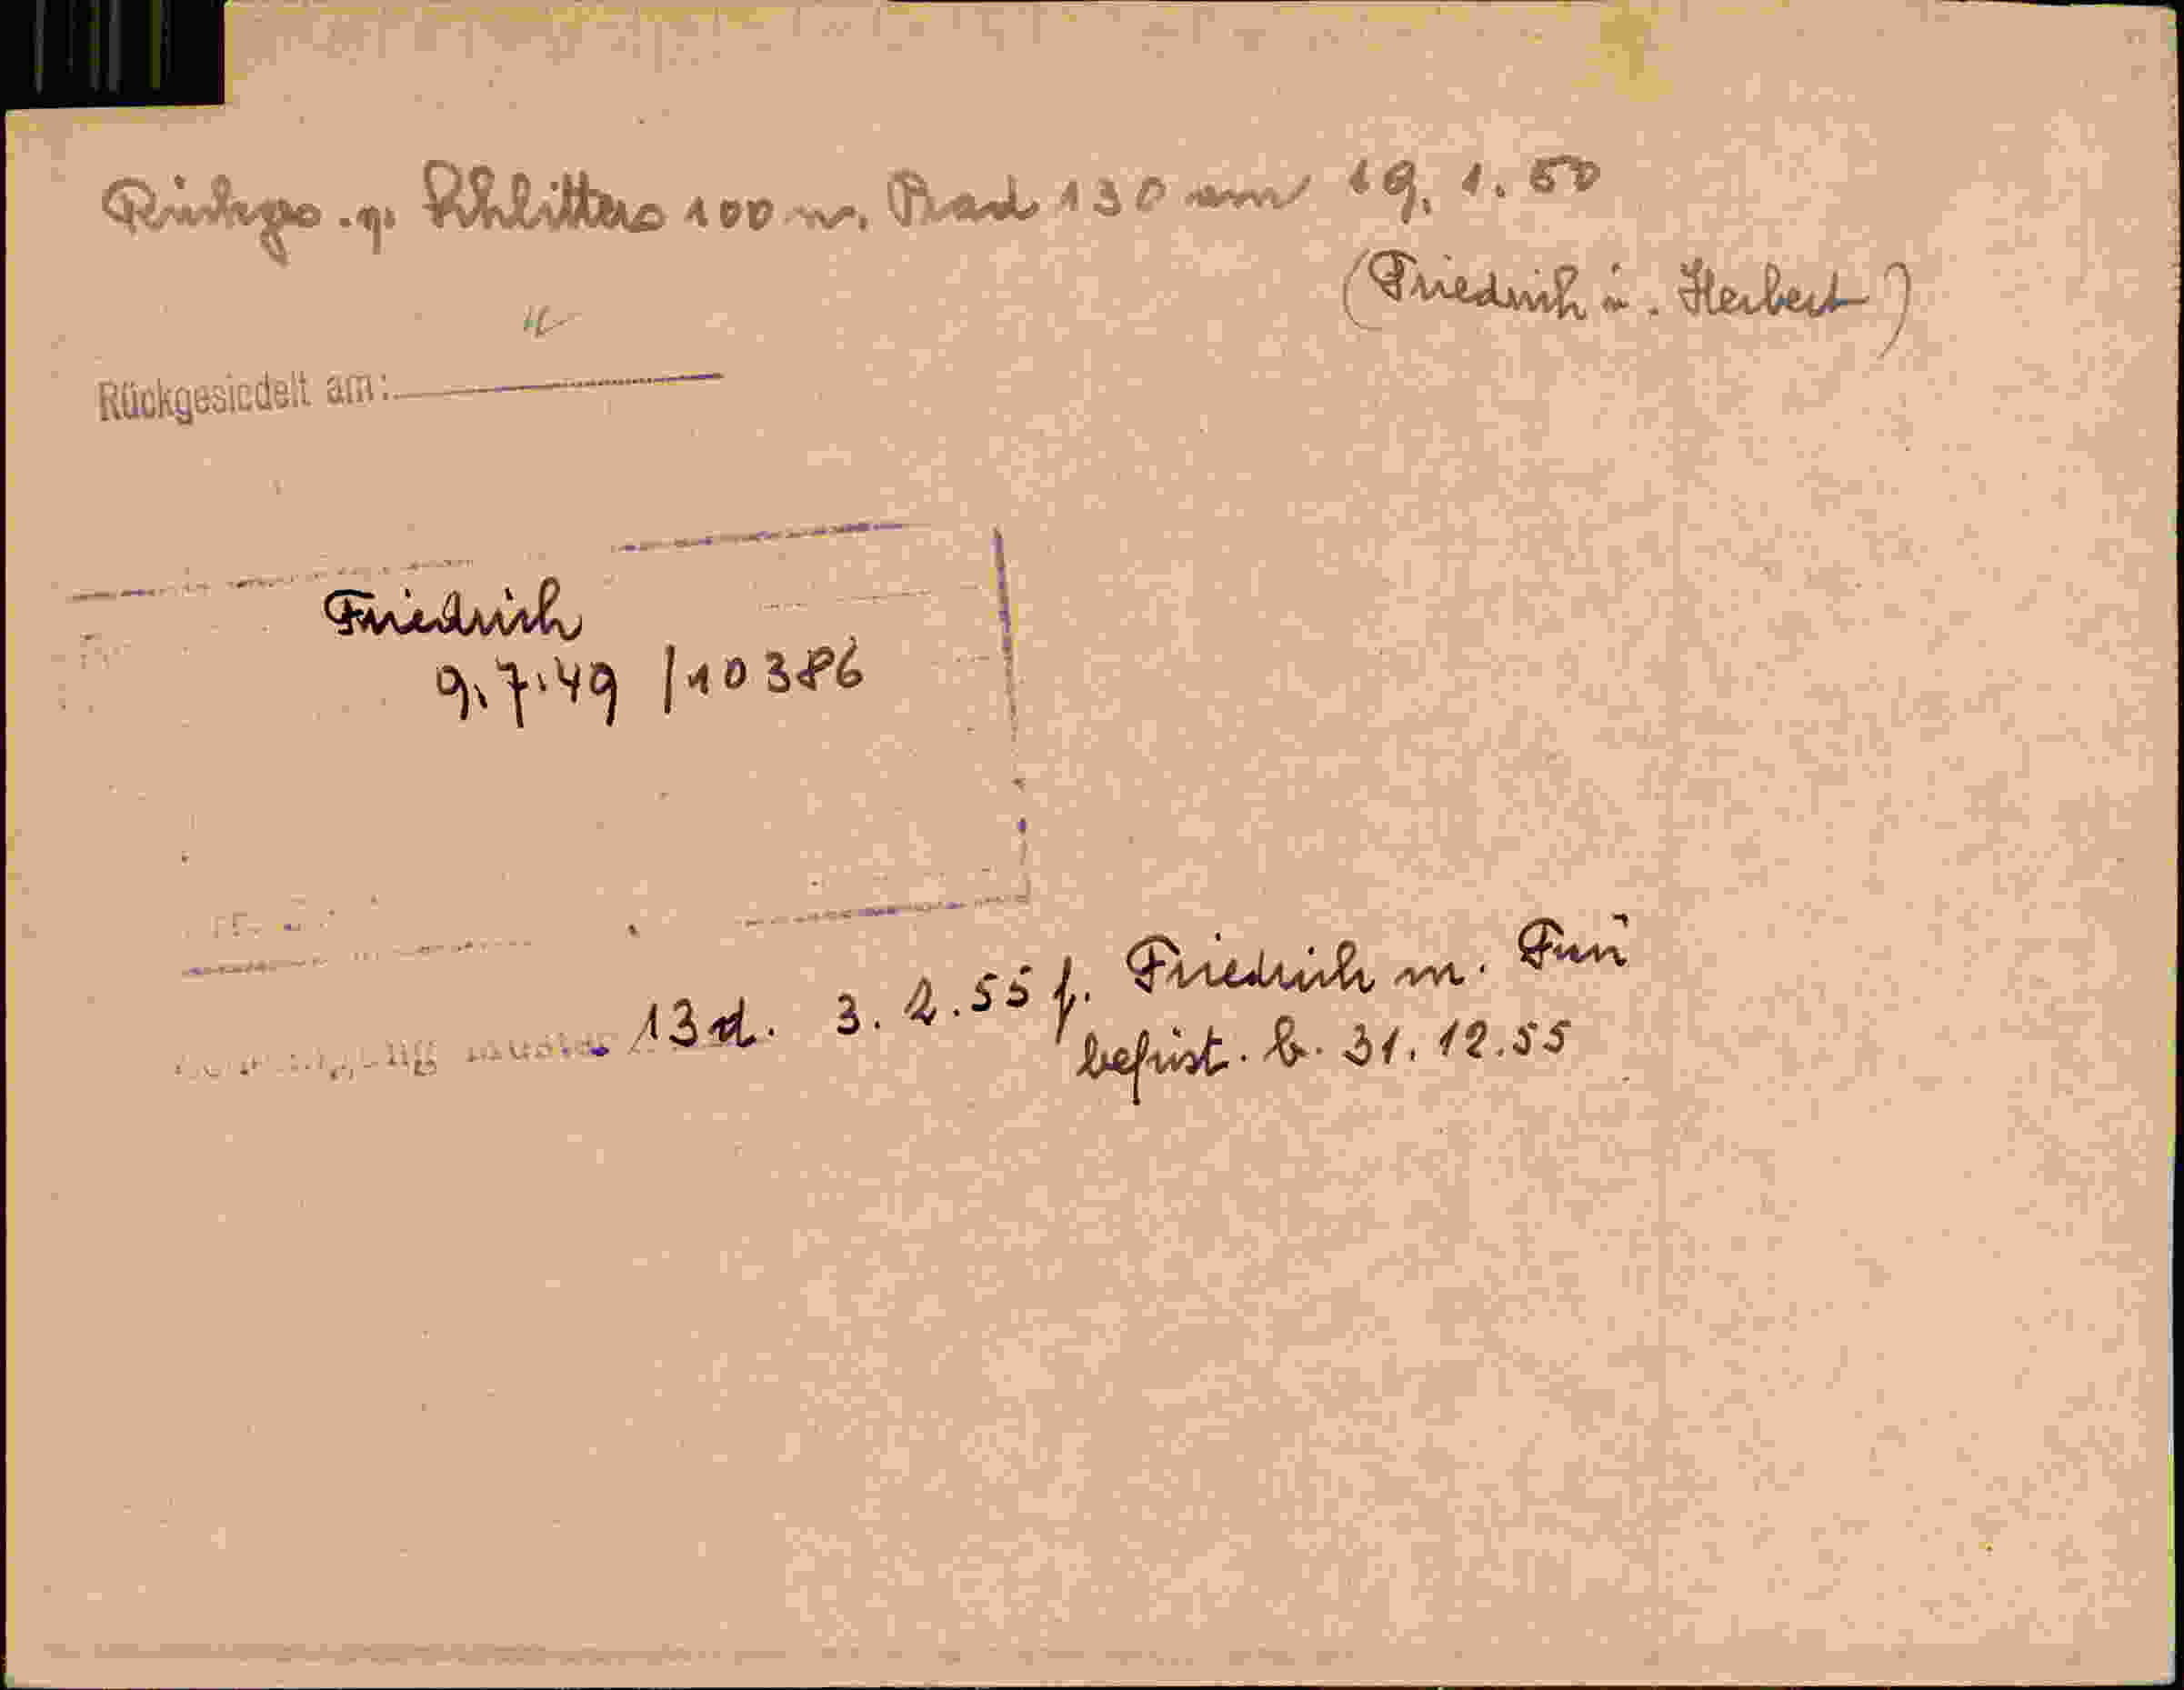 Rückges. n. Schlitters 100 n. Prad 130 am 19. 1. 50
(Friedrich u. Herbert)
Rückgesiedelt am:
Friedrich
9.7.49 / 10386
13d. 3. 2. 55 f. Friedrich m.
befrist. b. 31. 12. 55